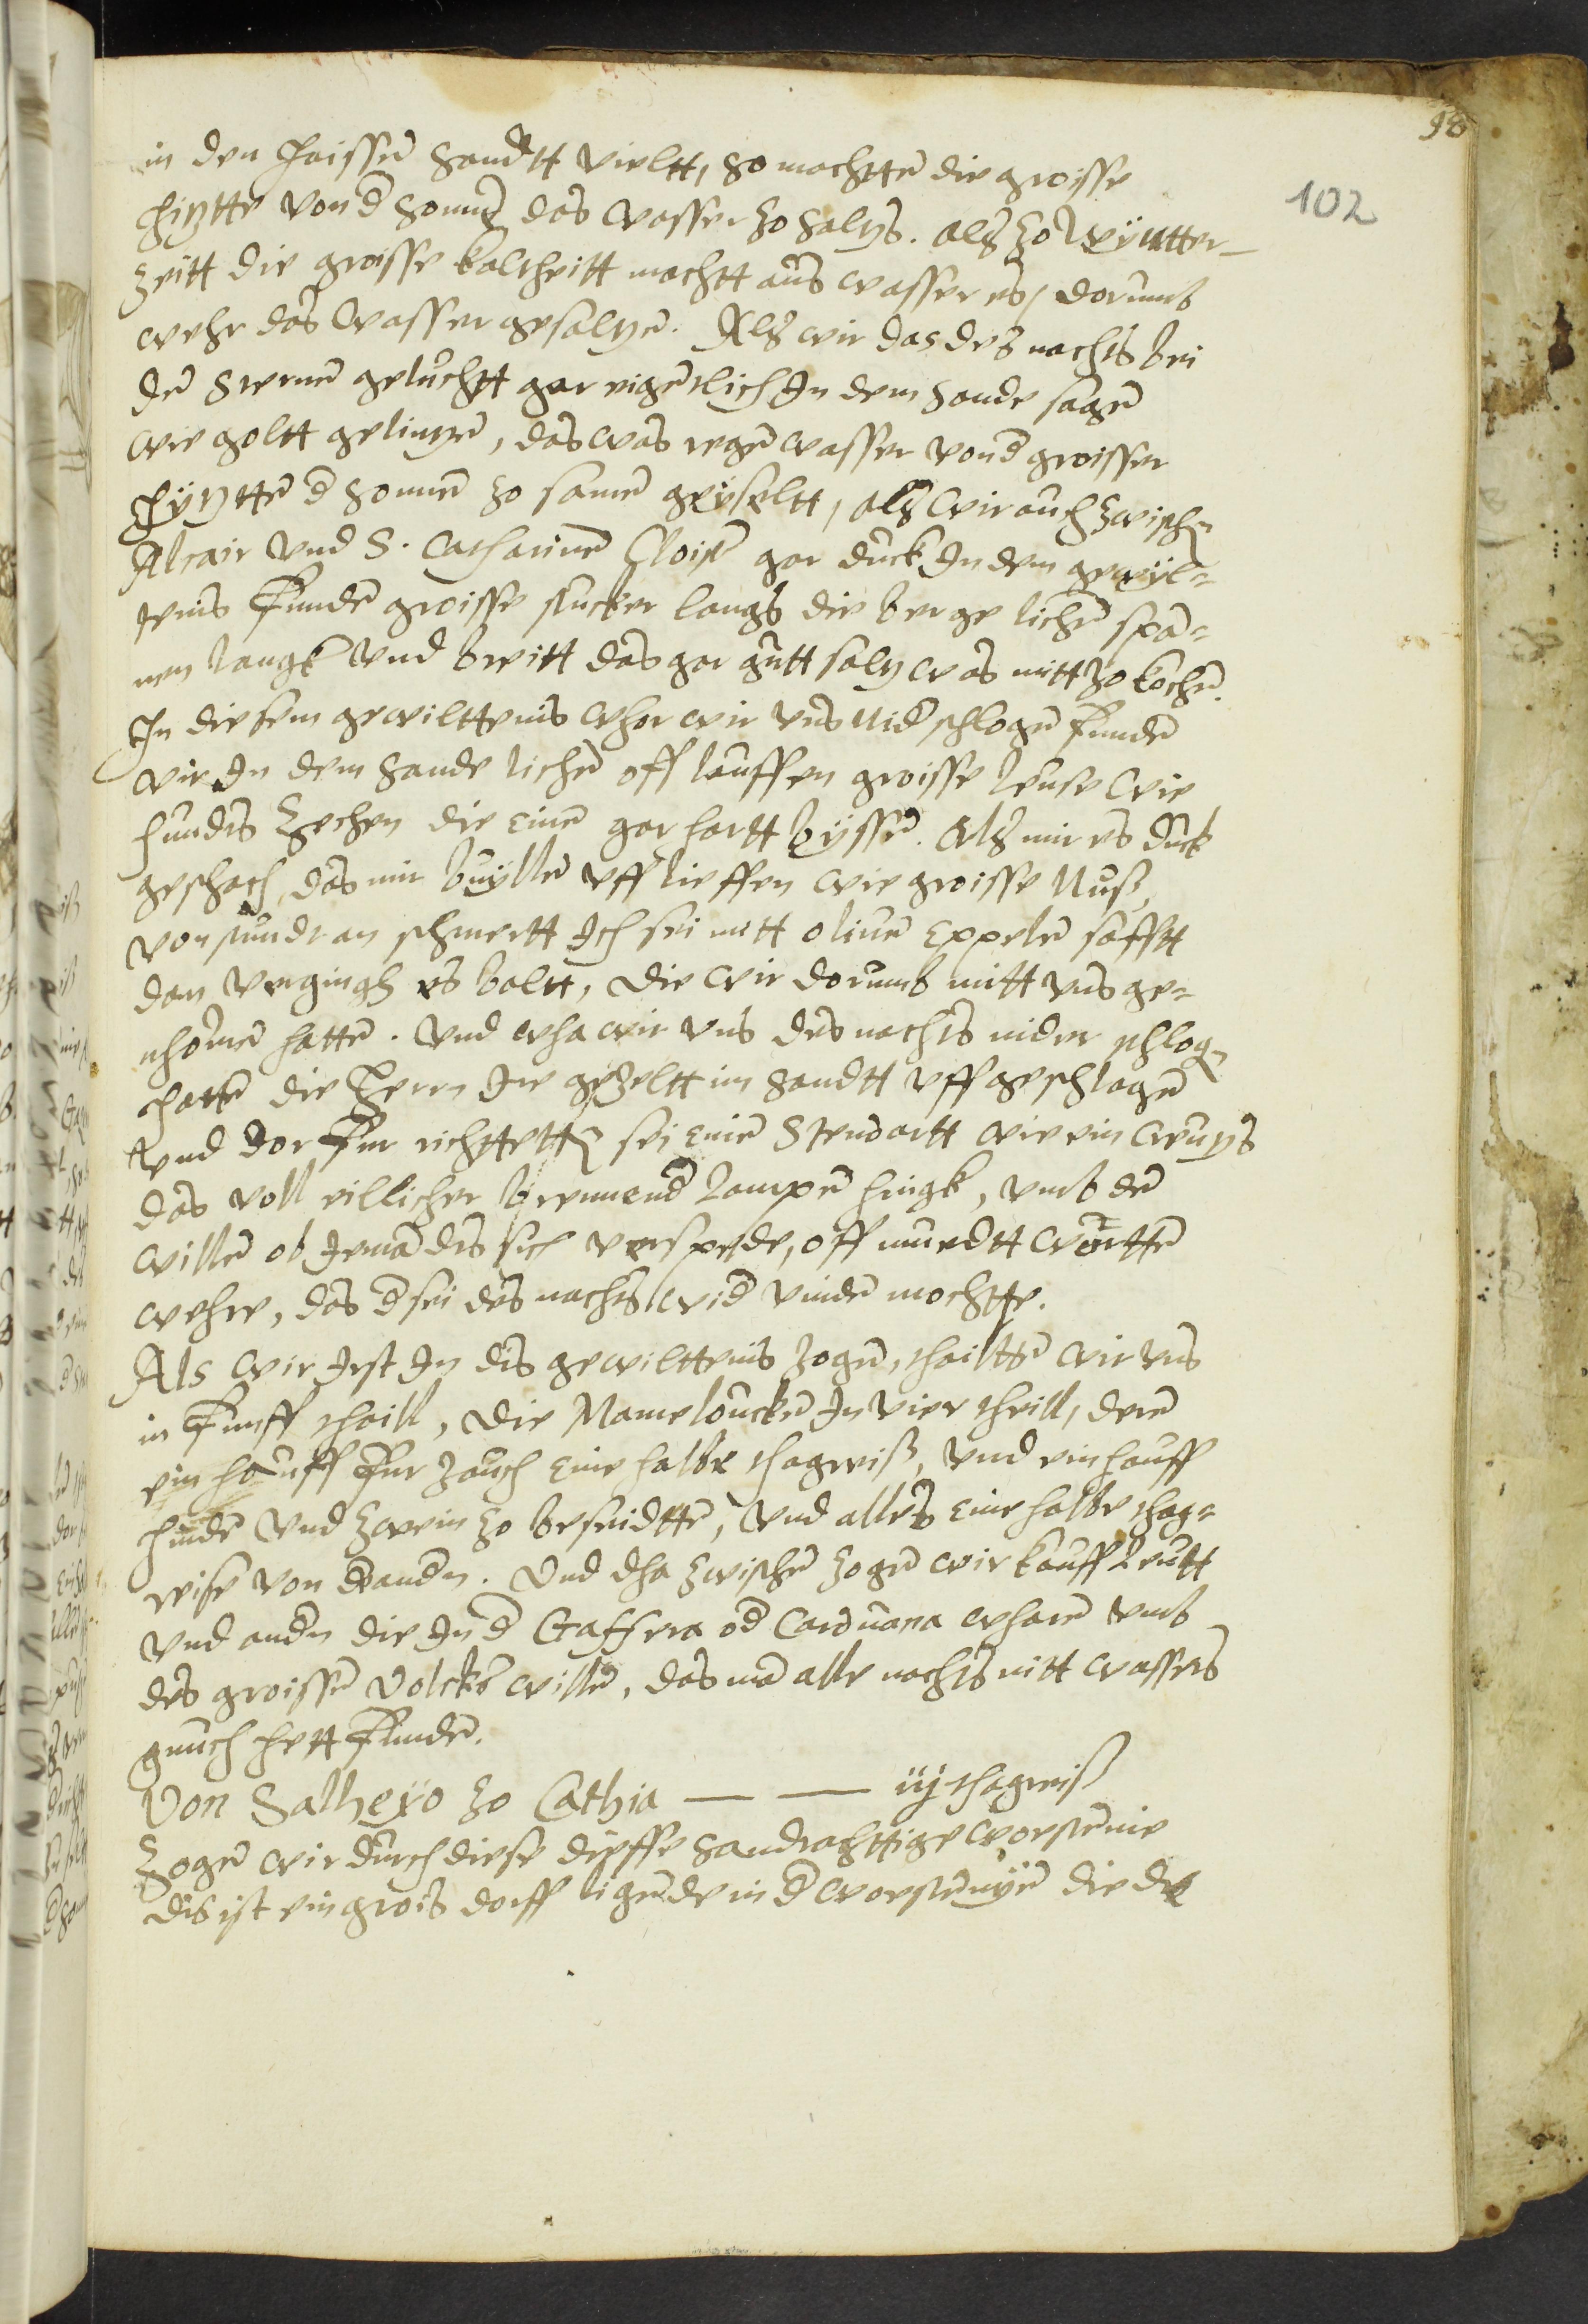 98
102
in den heissen̄ sandtt vieltt, so machtten̄ die groisse
hitztte von d sonnen das wasser zo saltzs. alß zo wÿntter-
zeitt die groisse kaltheitt machtt aus wasser eis, dorumb
wehr das wasser gesaltzen̄. Alß wir das des nachts bei
den̄ sternen̄ geluchtt gar eigentlich In dem sande sagen̄
wie goltt gelintzen̄, das was regen̄ wasser vond groisser
hÿtzttenn d sonnen̄ zo samen̄ geÿseltt, alß wir auch zwischen
Alcair vnd S. Catharinen̄ Cloister gar duck In dem gewÿl=
tenis funden̄ groisse stucker langs die berge lichen̄ span=
nen langk vnd breitt das gar gutt saltz was mitt zo kochen̄.
In diesem gewilttenis whor wir vns nid schlogen̄ funden̄
wir In dem sande lichen̄ off lauffen groisse leuse wie
hundts zechen die einen̄ gar hartt bÿssen̄. Alß mir es duck
geschach das mir buÿllen̄ vff lieffen wie groisse nuß,
von stundt an schmertt Ich sei mitt oliuen̄ Eppelen̄ safftt
dan vergingh es baltt, die wir dorumb mitt vns ge=
nhomen̄ hatten̄. Vnd wha wir vns des nachts nider schlogen
hatten̄ die Herrn Ire gezeltt im sandtt vff geschlagen̄
vnd dor fur richttetten sei einen̄ Stendartt wie ein Creutzs
das voll eillicher brennend lampen̄ hingk, vmb den̄
willen̄ ob Iemandts sich verspede, off muedtt wortten̄
wehre, das d sei des nachts wid vinden̄ mochtte.
Als wir Irst In dis gewilttenis zogen̄, thailtten̄ wir vns
in funff thaill, die Mameloucken̄ In vier theill, deren̄
ein hauff fur zouch eine halbe thagreiß, vnd ein hauff
hinden̄ vnd zwein zo beseidtten̄, vnd alles eine halbe thag=
reise von dandn. Vnd dha zwischen̄ zogen̄ wir kauffleutt
vnd andn die In d Gaffera od Carouana wharen̄ vmb
des groissen̄ Volcks willen̄, das man̄ alle nachts nitt wassers
gnuch hett funden̄.
Von Salheÿo zo Cathia — — iij thagreiß
Zogen̄ wir durch diese dieffe sandtachttige woestenie
dis ist ein grois dorff ligende in d woestenÿen̄ die de